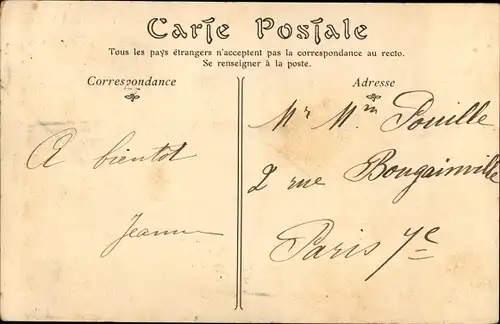 Carte Postale
Tous les pays étrangers n'acceptent pas la correspondance au recto.
Se renseigner à la poste.
Correspondance
A bientot
Jeanne
Adresse
Mr Mm Pouille
2 rue Bougainville
Paris 7e